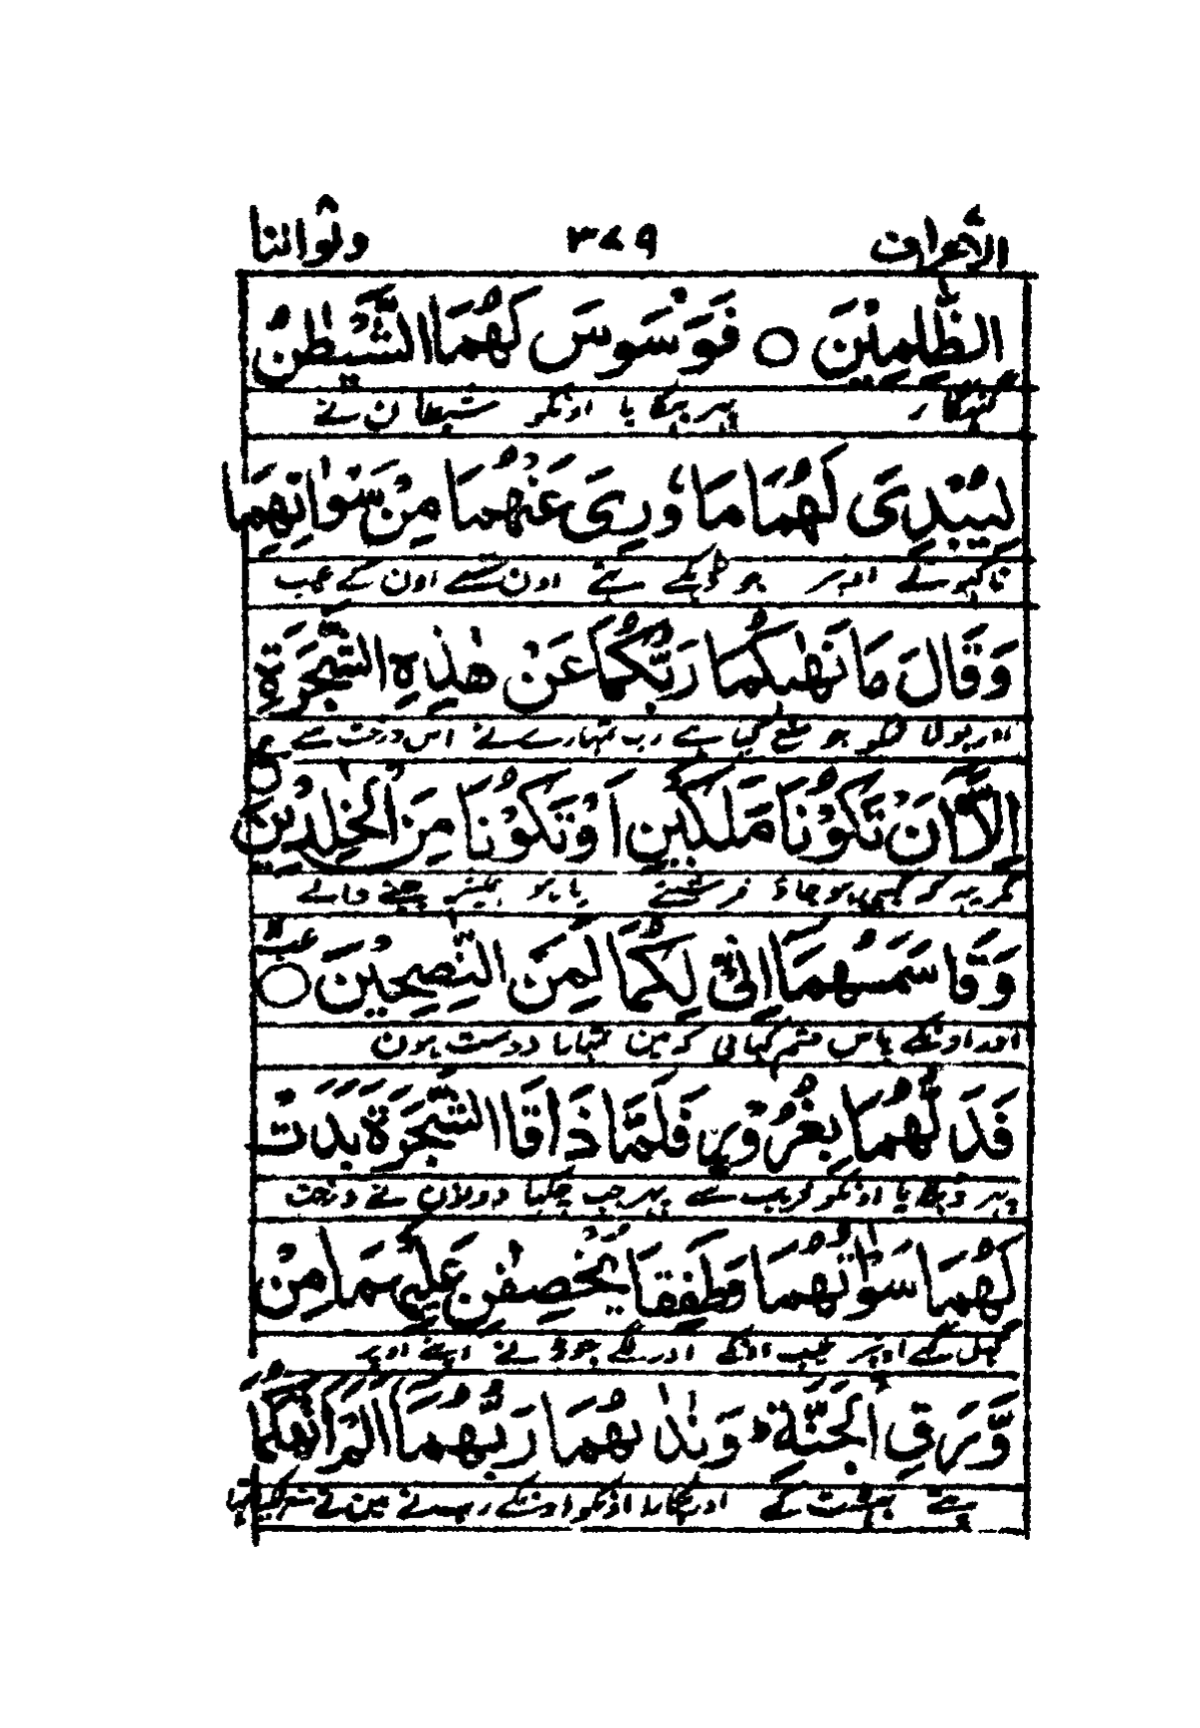 الاعراف ٣٤٩ ولواننا
الظّٰلِمِيْنَ ○ فَوَسْوَسَ لَهُمَا الشَّيْطٰنُ
گنہگار پہر بہکایا اونکو شیطان نے
لِيُبْدِيَ لَهُمَا مَا وٗرِيَ عَنْهُمَا مِنْ سَوْاٰتِهِمَا
تاکہولے اوپر جو ڈہکے تہے اون سے اون کے عیب
وَقَالَ مَا نَهٰىكُمَا رَبُّكُمَا عَنْ هٰذِهِ الشَّجَرَةِ
اور بولا تمکو جو منع کیا ہے رب تمہارے نے اس درخت سے
اِلَّاۤ اَنْ تَكُوْنَا مَلَكَيْنِ اَوْ تَكُوْنَا مِنَ الْخٰلِدِيْنَ ○
مگر یہ کہ کبہی ہوجاؤ فرشتے یا ہو ہمیشہ جینے والے
وَقَاسَمَهُمَاۤ اِنِّيْ لَكُمَا لَمِنَ النّٰصِحِيْنَ ○
اور اونکے پاس قسم کہائی کہ مین تمہارا دوست ہون
فَدَلّٰهُمَا بِغُرُوْرٍ فَلَمَّا ذَاقَا الشَّجَرَةَ بَدَتْ
پہر ڈہلایا اونکو فریب سے پہر جب چکہا دونون نے درخت
لَهُمَا سَوْاٰتُهُمَا وَطَفِقَا يَخْصِفٰنِ عَلَيْهِمَا مِنْ
کہل گے اوپر عیب اونکے اور لگے جوڑنے اپنے اوپر
وَّرَقِ الْجَنَّةِ ط وَنَادٰىهُمَا رَبُّهُمَاۤ اَلَمْ اَنْهَكُمَا
پتے بہشت کے اور پکارا اونکو اونکے رب نے مین نے منع کیا تہا